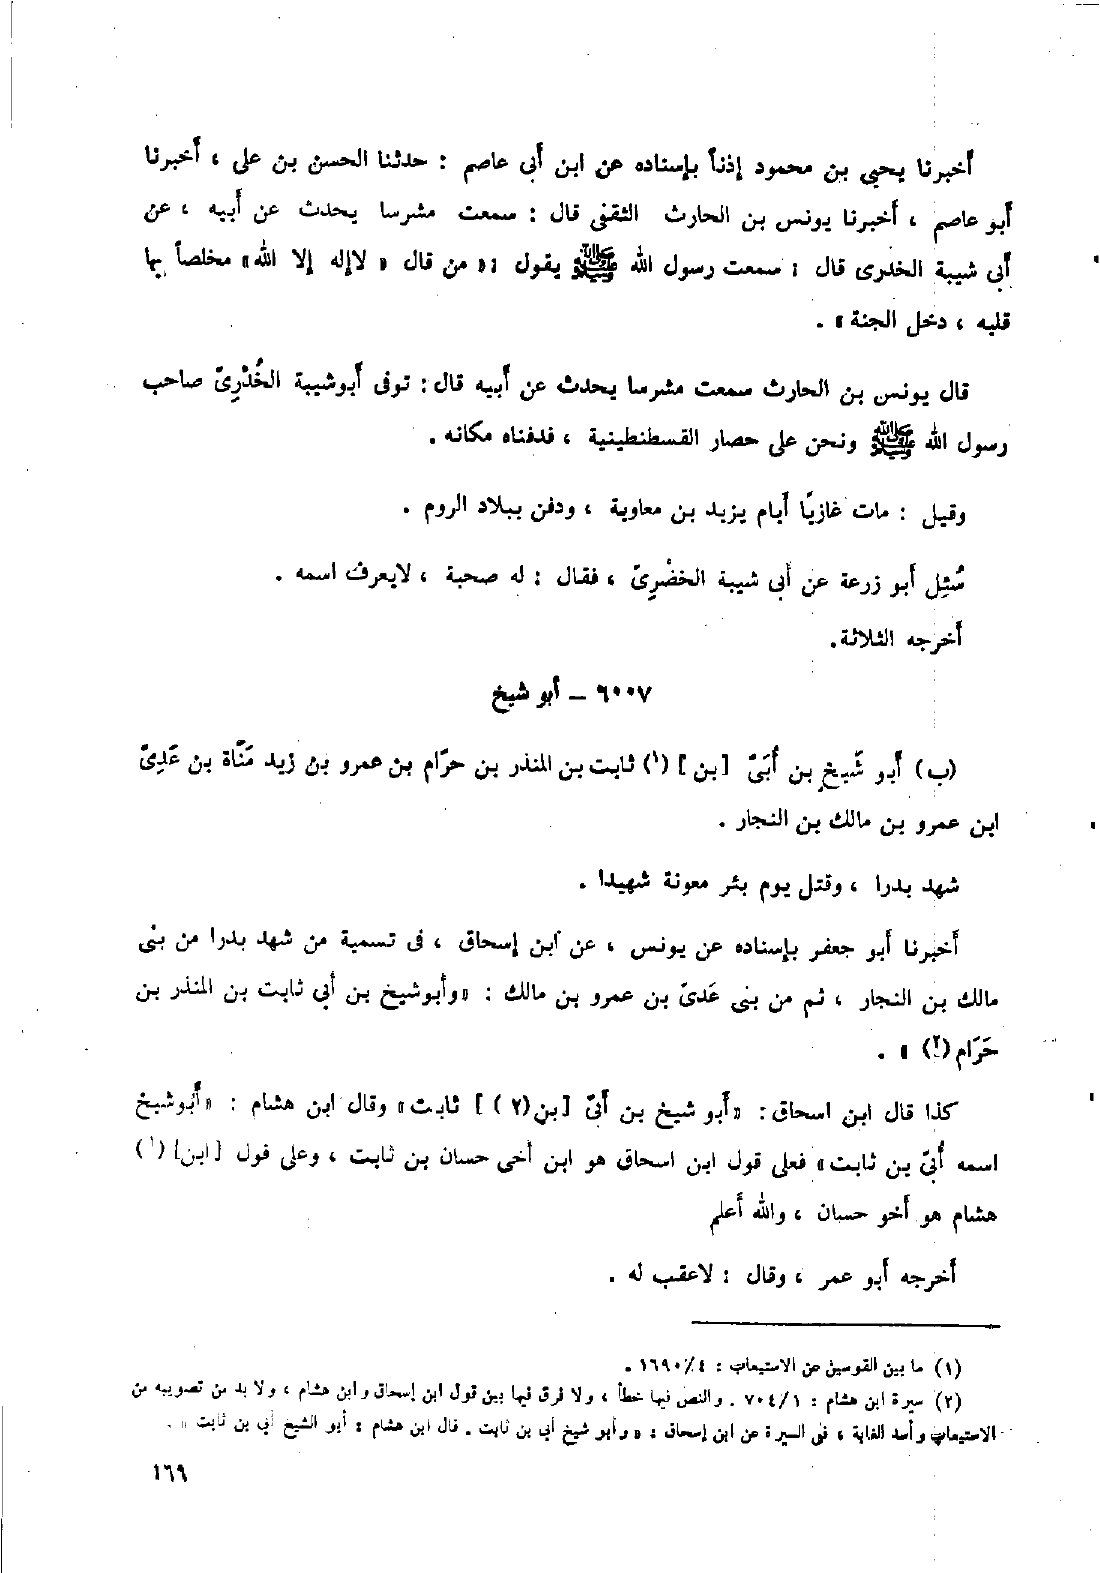 أخبرنا يحيى بن محمود إذناً بإسناده عن ابن أبى عاصم : حدثنا الحسن بن على ، أخبرنا
أبو عاصم ، أخبرنا يونس بن الحارث الثقفى قال : سمعت مشرسا يحدث عن أبيه ، عن
أبى شيبة الخدرى قال : سمعت رسول الله ﷺ يقول : « من قال « لاإله إلا الله» مخلصاً بها
قلبه ، دخل الجنة » .
قال يونس بن الحارث سمعت مشرسا يحدث عن أبيه قال : توفى أبوشيبة الخُدْرِىّ صاحب
رسول الله ﷺ ونحن على حصار القسطنطينية ، فدفناه مكانه .
وقيل : مات غازيًا أيام يزيد بن معاوية ، ودفن ببلاد الروم .
سُئِل أبو زرعة عن أبى شيبة الخضْرِىّ ، فقال : له صحبة ، لايعرف اسمه .
أخرجه الثلاثة.
٦٠٠٧ – أبو شيخ
(ب) أبو شَيخ بن أُبَىّ [بن] (١) ثابت بن المنذر بن حرَام بن عمرو بن زيد مَنَاة بن عَدِىّ
ابن عمرو بن مالك بن النجار .
شهد بدرا ، وقتل يوم بئر معونة شهيدا .
أخبرنا أبو جعفر بإسناده عن يونس ، عن ابن إسحاق ، فى تسمية من شهد بدرا من بنى
مالك بن النجار ، ثم من بنى عَدىّ بن عمرو بن مالك : «وأبوشيخ بن أبي ثابت بن المنذر بن
حَرَام(٢) » .
كذا قال ابن اسحاق : «أبو شيخ بن أبىّ [بن(٢)] ثابت» وقال ابن هشام : «أبوشيخ
اسمه أُبىّ بن ثابت» فعلى قول ابن اسحاق هو ابن أخى حسان بن ثابت ، وعلى قول [ابن] (١)
هشام هو أخو حسان ، والله أعلم
أخرجه أبو عمر ، وقال : لاعقب له .
(١) ما بين القوسين عن الاستيعاب : ١٦٩٠/٤ .
(٢) سيرة ابن هشام : ٧٠٤/١ . والنص فيها خطأ ، ولا فرق فيها بين قول ابن إسحاق وابن هشام ، ولا بد من تصويبه من
الاستيعاب وأسد الغابة ، فى السيرة عن ابن إسحاق : «وأبو شيخ أبي بن ثابت . قال ابن هشام : أبو الشيخ أبي بن ثابت » .
١٦٩